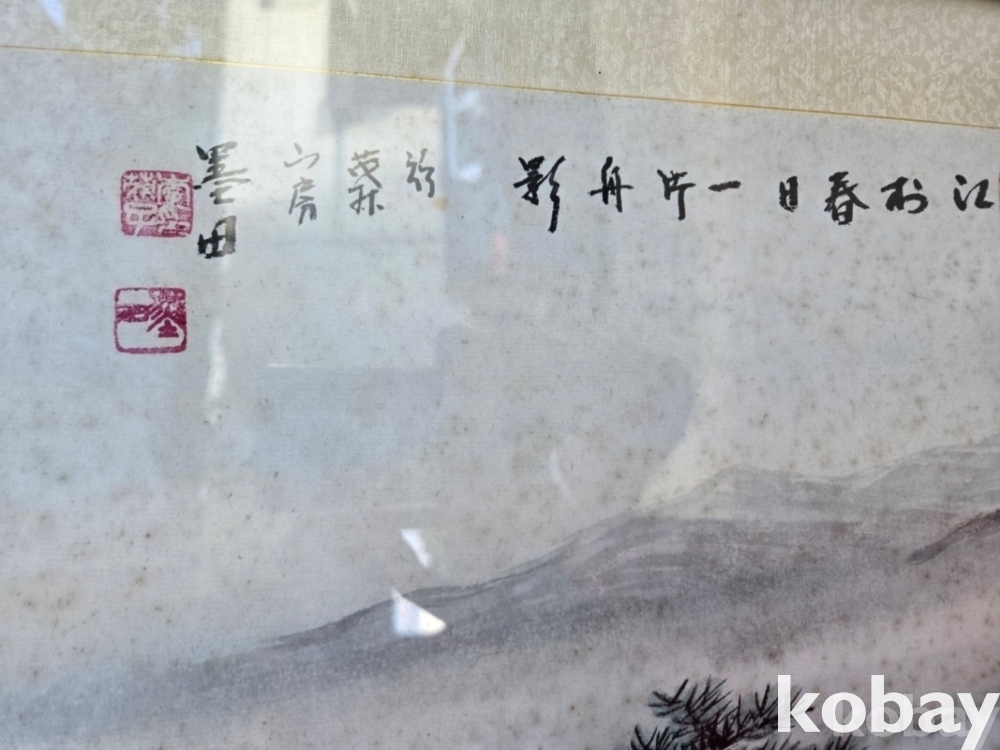 江村春日一片舟影
於
山房
墨田
kobay